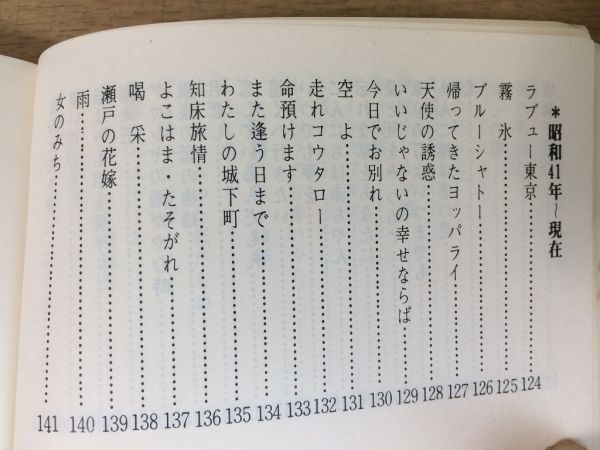 ＊昭和41年～現在
ラブユー東京……124
霧　氷……125
ブルーシャトー……126
帰ってきたヨッパライ……127
天使の誘惑……128
いいじゃないの幸せならば……129
今日でお別れ……130
空　よ……131
走れコウタロー……132
命預けます……133
また逢う日まで……134
わたしの城下町……135
知床旅情……136
よこはま・たそがれ……137
喝　采……138
瀬戸の花嫁……139
雨……140
女のみち……141